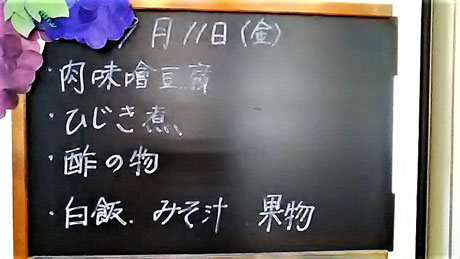 7月11日(金)
・肉味噌豆腐
・ひじき煮
・酢の物
・白飯. みそ汁 果物